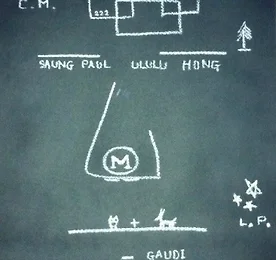 C.M.
222
SAUNG PAUL ULULU HONG
M
+
L.P.
— GAUDI